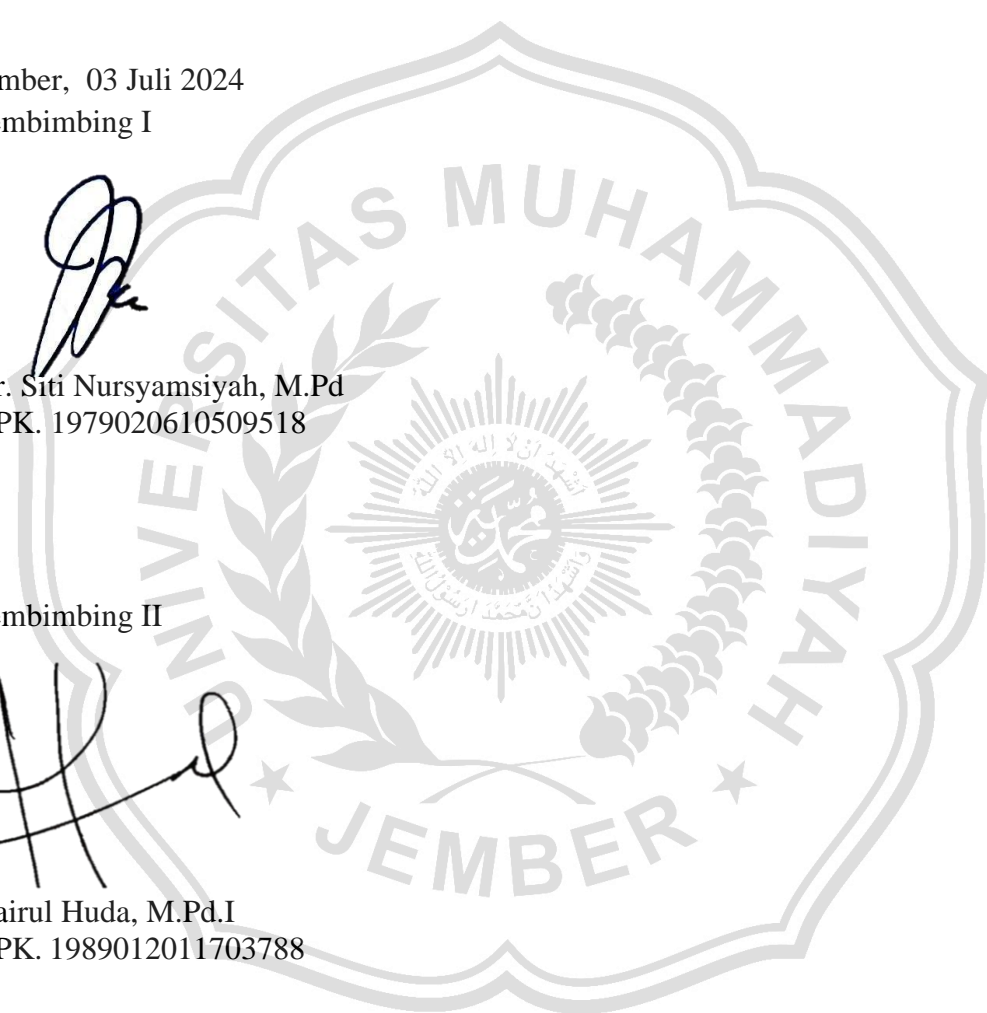 mber, 03 Juli 2024
embimbing I
r. Siti Nursyamsiyah, M.Pd
PK. 1979020610509518
embimbing II
airul Huda, M.Pd.I
PK. 1989012011703788
UNIVERSITAS MUHAMMADIYAH
JEMBER